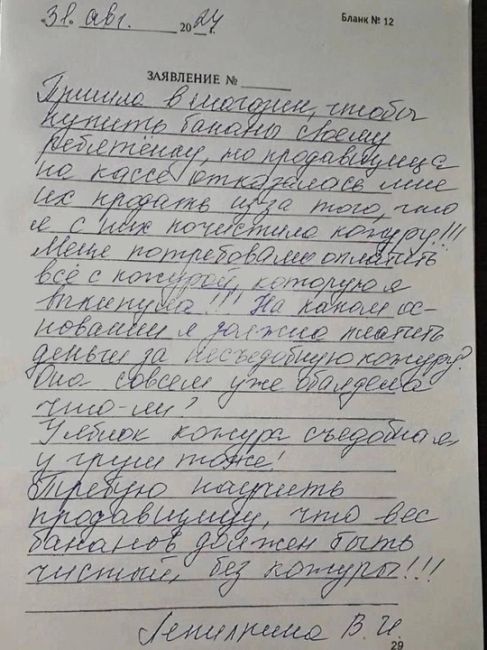 31. авг. 2024 г.
Бланк № 12
ЗАЯВЛЕНИЕ №
Пришла в магазин, чтобы
купить бананы своему
ребятёнку, но продавщица
на кассе отказалась мне
их продать из за того, что
я с них почистила кожуру!!!
Меня потребовали оплатить
всё с кожурой, которую я
выкинула!!! На каком ос-
новании я должна платить
деньги за несъедобную кожуру?
Она совсем уже обалдела
что-ли?
У яблок кожура съедобная,
у груш тоже!
Требую научить
продавщицу, что вес
бананов должен быть
чистый, без кожуры!!!
В. И.
29